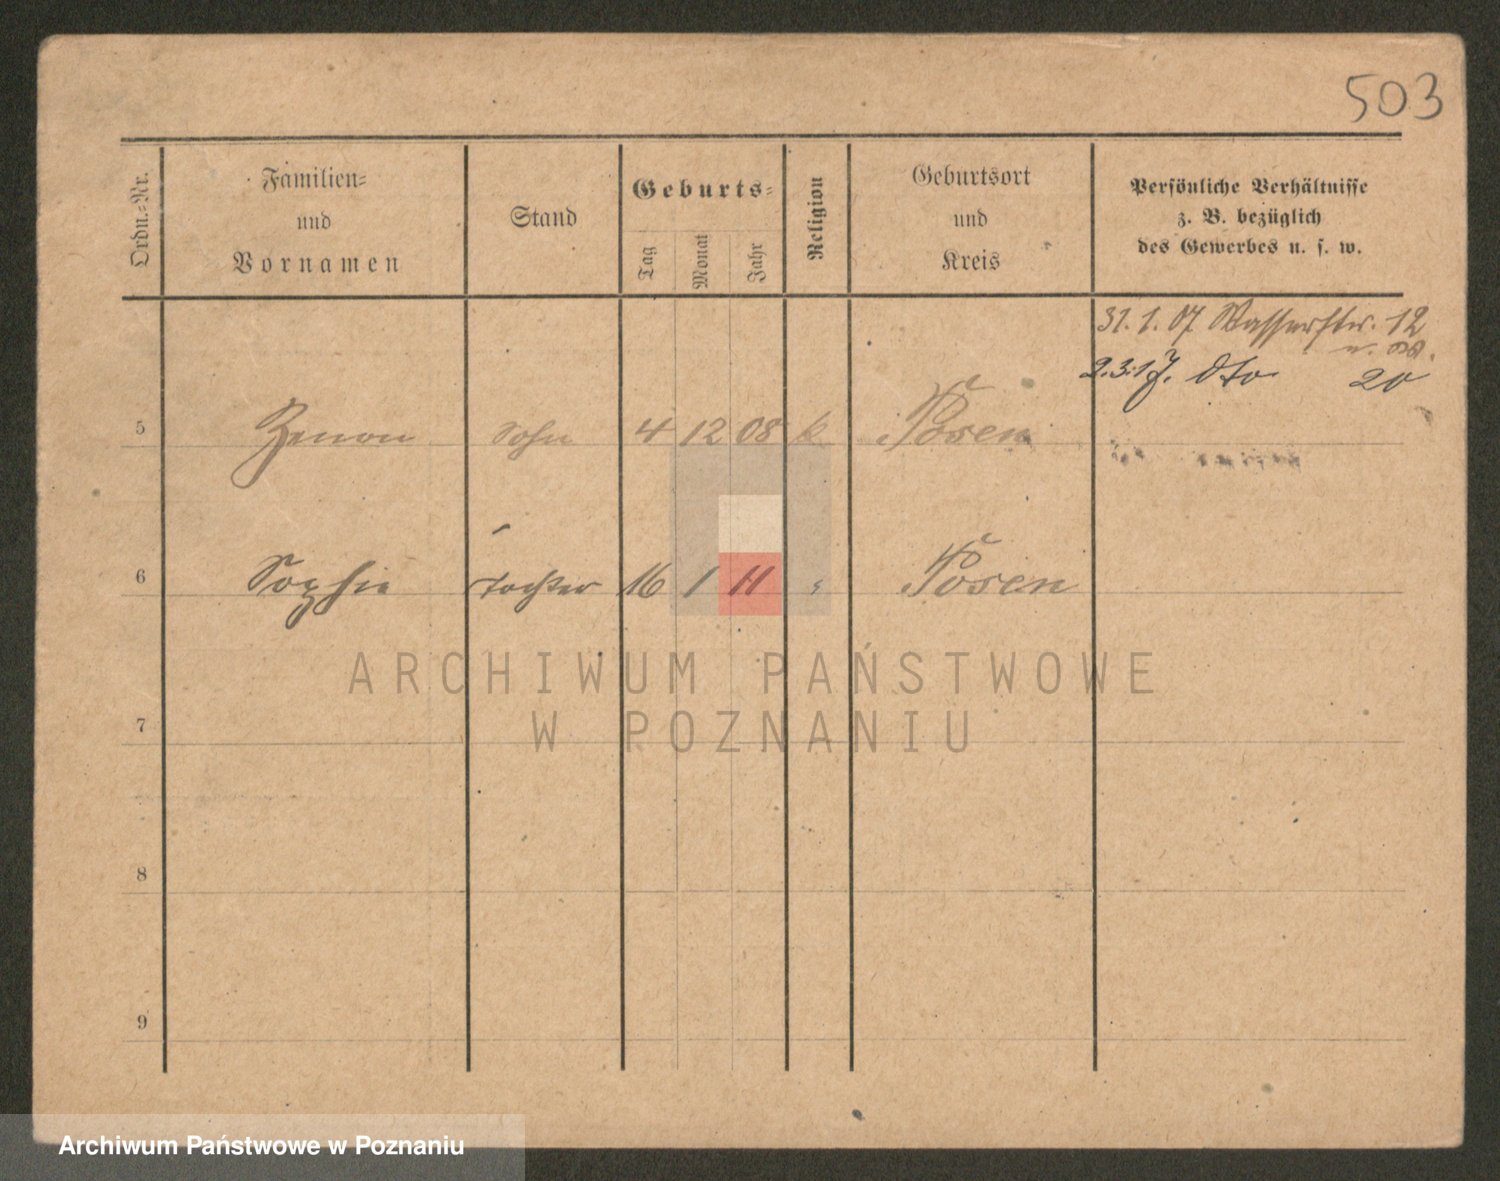 503
Ordn.=Nr.
Familien=
und
Vornamen
Stand
Geburts=
Tag
Monat
Jahr
Religion
Geburtsort
und
Kreis
Persönliche Verhältnisse
z. B. bezüglich
des Gewerbes u. s. w.
31. 1. 07 Wasserstr. 12
2. 3. 17. dto 20
5 Zenon Sohn 4 12 08 k Posen
6 Sophie Tochter 16 1 11 " Posen
7
8
9
ARCHIWUM PAŃSTWOWE
W POZNANIU
Archiwum Państwowe w Poznaniu